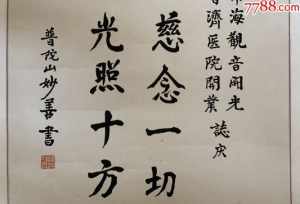 海觀音開光
普濟医院開業 誌庆
慈念一切
光照十方
普陀山妙善書
7788.com